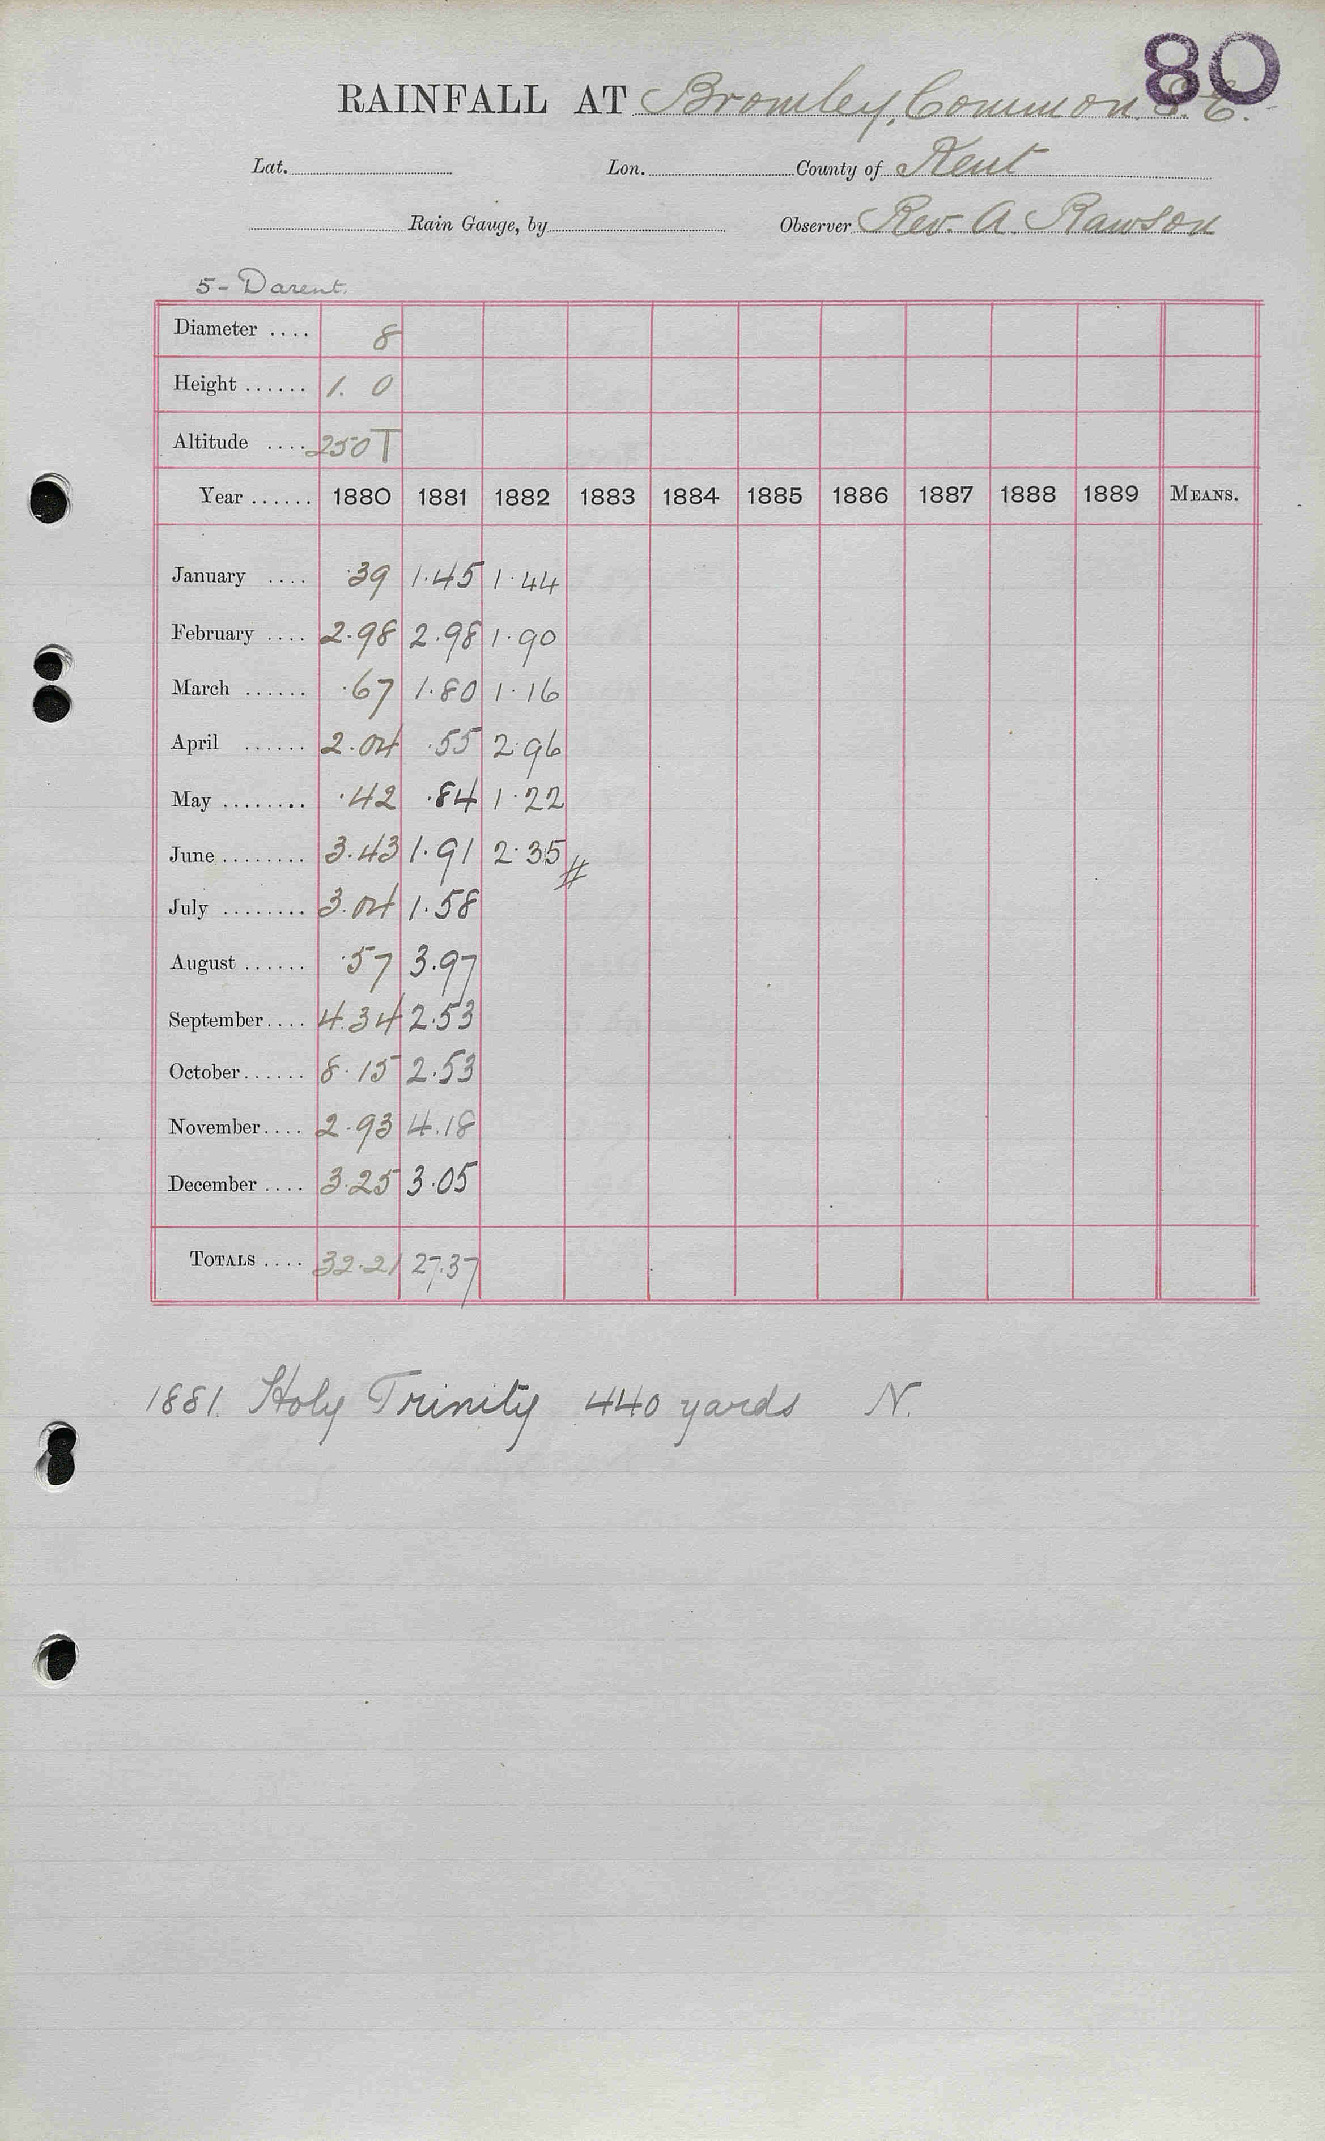 80
RAINFALL AT Bromley, Common S.E.
Lat. Lon. County of Kent
Rain Gauge, by Observer Rev. A. Rawson
5 - Darent.
Diameter .... 8
Height ...... 1. 0
Altitude .... 250 T
Year ...... 1880 1881 1882 1883 1884 1885 1886 1887 1888 1889 MEANS.
January .... .39 1.45 1.44
February .... 2.98 2.98 1.90
March ...... .67 1.80 1.16
April ...... 2.04 .55 2.96
May ........ .42 .84 1.22
June ........ 3.43 1.91 2.35 //
July ........ 3.04 1.58
August ...... .57 3.97
September .... 4.34 2.53
October ...... 8.15 2.53
November .... 2.93 4.18
December .... 3.25 3.05
TOTALS .... 32.21 27.37
1881. Holy Trinity 440 yards N.